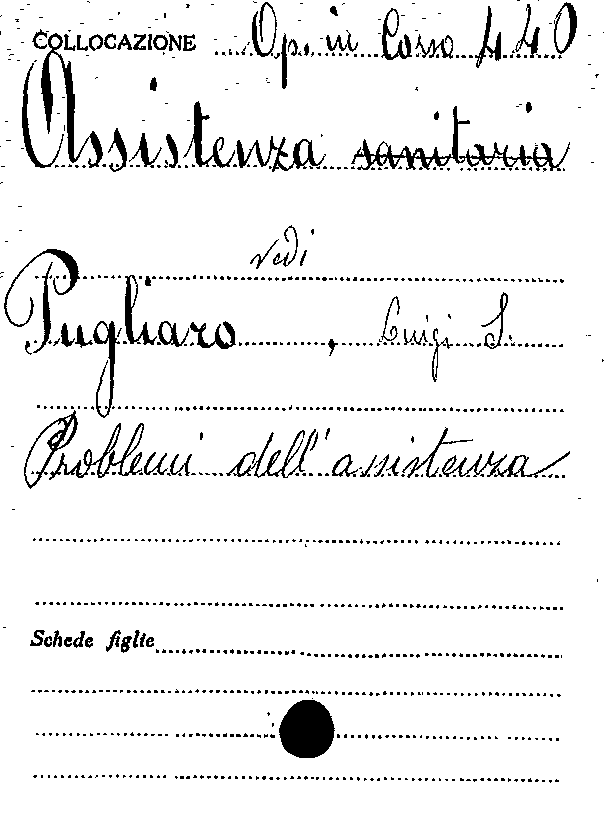 COLLOCAZIONE Op. in Corso 440
Assistenza sanitaria
vedi
Pugliaro, Luigi S.
Problemi dell'assistenza
Schede figlie